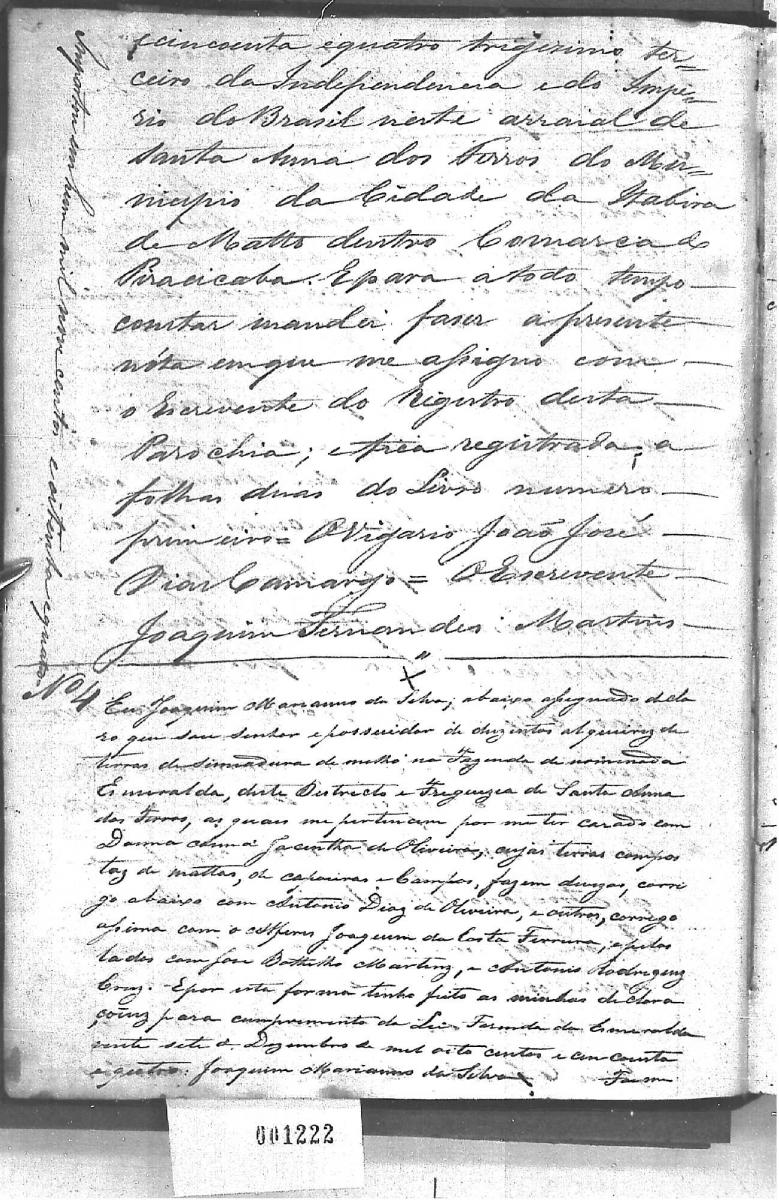 e cincoenta e quatro trigesimo ter=
ceiro da Independencia e do Impe=
rio do Brasil neste arraial de
Santa Anna dos Ferros do Mu=
nicipio da Cidade da Itabira
de Matto dentro Comarca do
Piracicaba. E para a todo tempo
constar mandei faser a presente
nóta em que me assigno com
o Escrevente do Registro desta
Parochia; e fica registrada a
folhas duas do Livro numero
primeiro = O Vigario João José
Dias Camargo = O Escrevente
Joaquim Fernandes Martins
Nº 4 Eu Joaquim Marianno da Silva, abaixo assignado decla
ro que sou senhor e possuidor de duzentos alqueirez de
terras de semeadura de milho na Fazenda denominada
Esmeralda, deste Districto e Freguezia de Santa Anna
dos Ferros, as quais me pertencem por me ter cazado com
Donna Anna Jacintha de Oliveira, cujas terras compos
taz de mattas, de capoeiras e Campos, fazem divizas, corri
go abaixo com Antonio Diaz de Oliveira, e outros, corrego
assima com o Alferes Joaquim da Costa Ferreira, e pelos
lados com José Bottelho Martinz, e Antonio Rodriguez
Cruz. E por esta forma tenho feito as minhas declara
çoinz para cumpremento da Lei. Fazenda da Esmeralda
vinte sete de Dezembro de mil oito centos e cincoenta
e quatro. Joaquim Marianno da Silva
Importou em hum mil nove centos e oitenta e quatro
001222